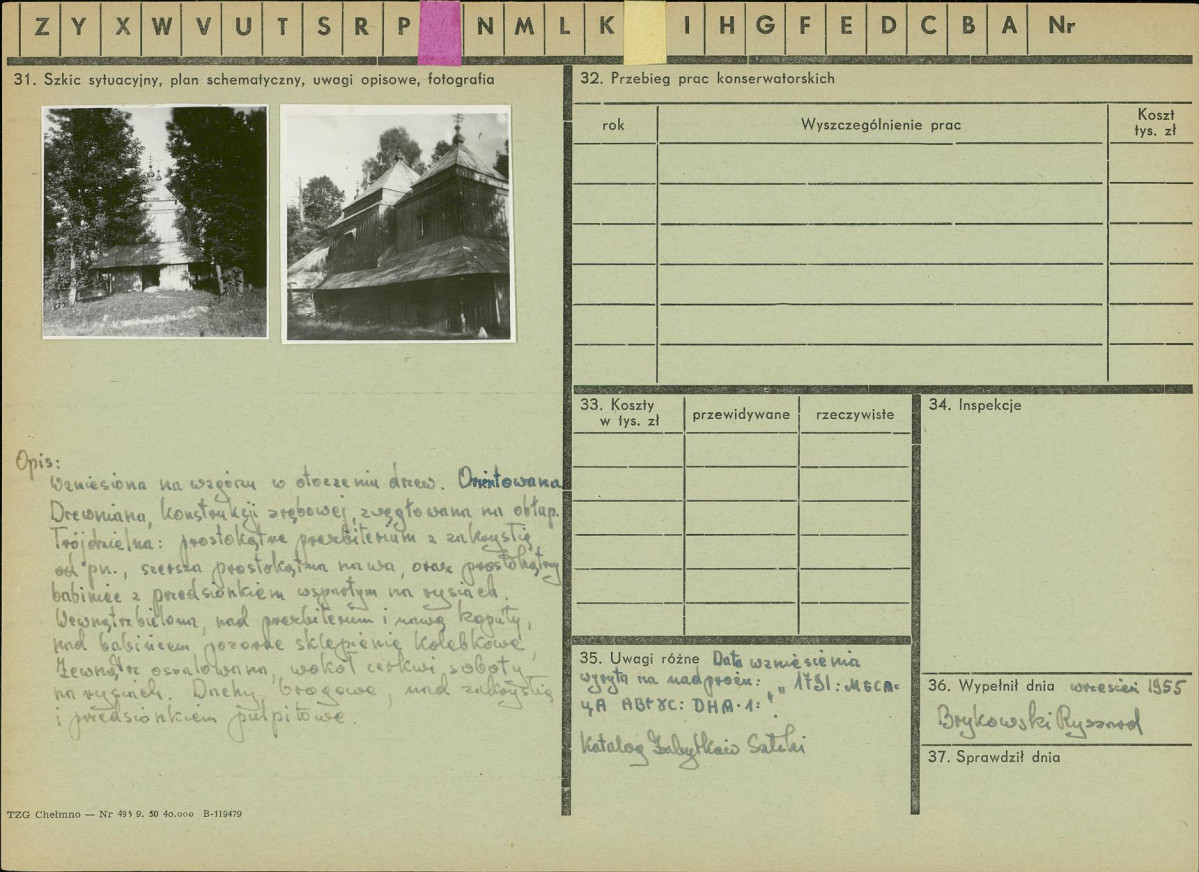 Z Y X W V U T S R P N M L K I H G F E D C B A Nr
31. Szkic sytuacyjny, plan schematyczny, uwagi opisowe, fotografia
Opis:
Wzniesiona na wzgórzu w otoczeniu drzew. Orientowana
Drewniana, konstrukcji zrębowej, zwęgłowana na obłap.
Trójdzielna: prostokątne prezbiterium z zakrystią
od pn., szersza prostokątna nawa, oraz prostokątny
babiniec z przedsionkiem wspartym na rysiach.
Wewnątrz bielona, nad prezbiterium i nawą kopuły,
nad babińcem pozorne sklepienie kolebkowe,
Zewnątrz oszalowana, wokół cerkwi soboty
na rysiach. Dachy brogowe, nad zakrystią
i przedsionkiem pulpitowe.
TZG Chełmno — Nr 495 9. 50 40.000 B-119479
32. Przebieg prac konserwatorskich
rok Wyszczególnienie prac Koszt
tys. zł
33. Koszty
w tys. zł przewidywane rzeczywiste
34. Inspekcje
35. Uwagi różne Data wzniesienia
wyryta na nadprożu: " 1791: МБСА=
ЦА АВГȢС: DHA·1: "
Katalog Zabytków Sztuki
36. Wypełnił dnia wrzesień 1955
Brykowski Ryszard
37. Sprawdził dnia